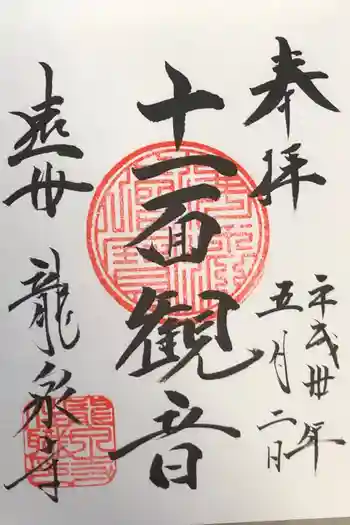 奉拝
平成卅年
五月二日
十一面観音
龍泉寺